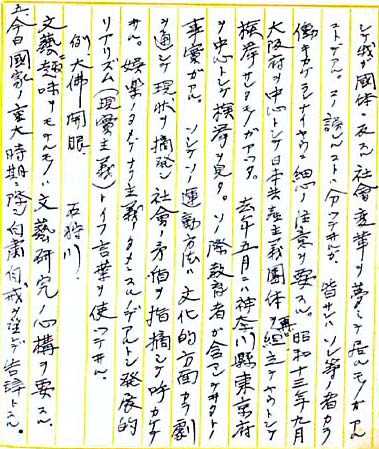 シ我ガ國体ニ反スル社會変革ヲ夢ミテ居ルモノガアル
ストデアル。コノ誤レルコト、分ツテヰルガ 皆サンハソレ等ノ者カラ
働キカケラレナイヤウニ細心ノ注意ヲ要スル。昭和十三年九月
大阪府ヲ中心トシテ日本共産主義團体ヲ再組立テヤウトシテ
検挙サレタモノガアツタ。去年五月ニハ神奈川縣東京府
ヲ中心トシテ検挙ヲ見タ。ソノ際教育者ガ含マレテヰタトノ
事實ガアル。ソレデソノ運動方法ハ文化的方面カラ劇
ヲ通シテ現状ヲ摘発シ社會ノ矛盾ヲ指摘シテ呼カケテ
ヰル。娯楽ノタメデナク主義ノタメニスルノデアルトシ発展的
リアリズム(現實主義)トイフ言葉ヲ使ツテヰル。
例 大佛開眼. 石狩川.
文藝ニ趣味ヲモツモノハ文藝研究ノ心構ヲ要スル。
五、今日國家ノ重大時期ニ際シ自粛自戒ヲ望ミ告諄トスル。